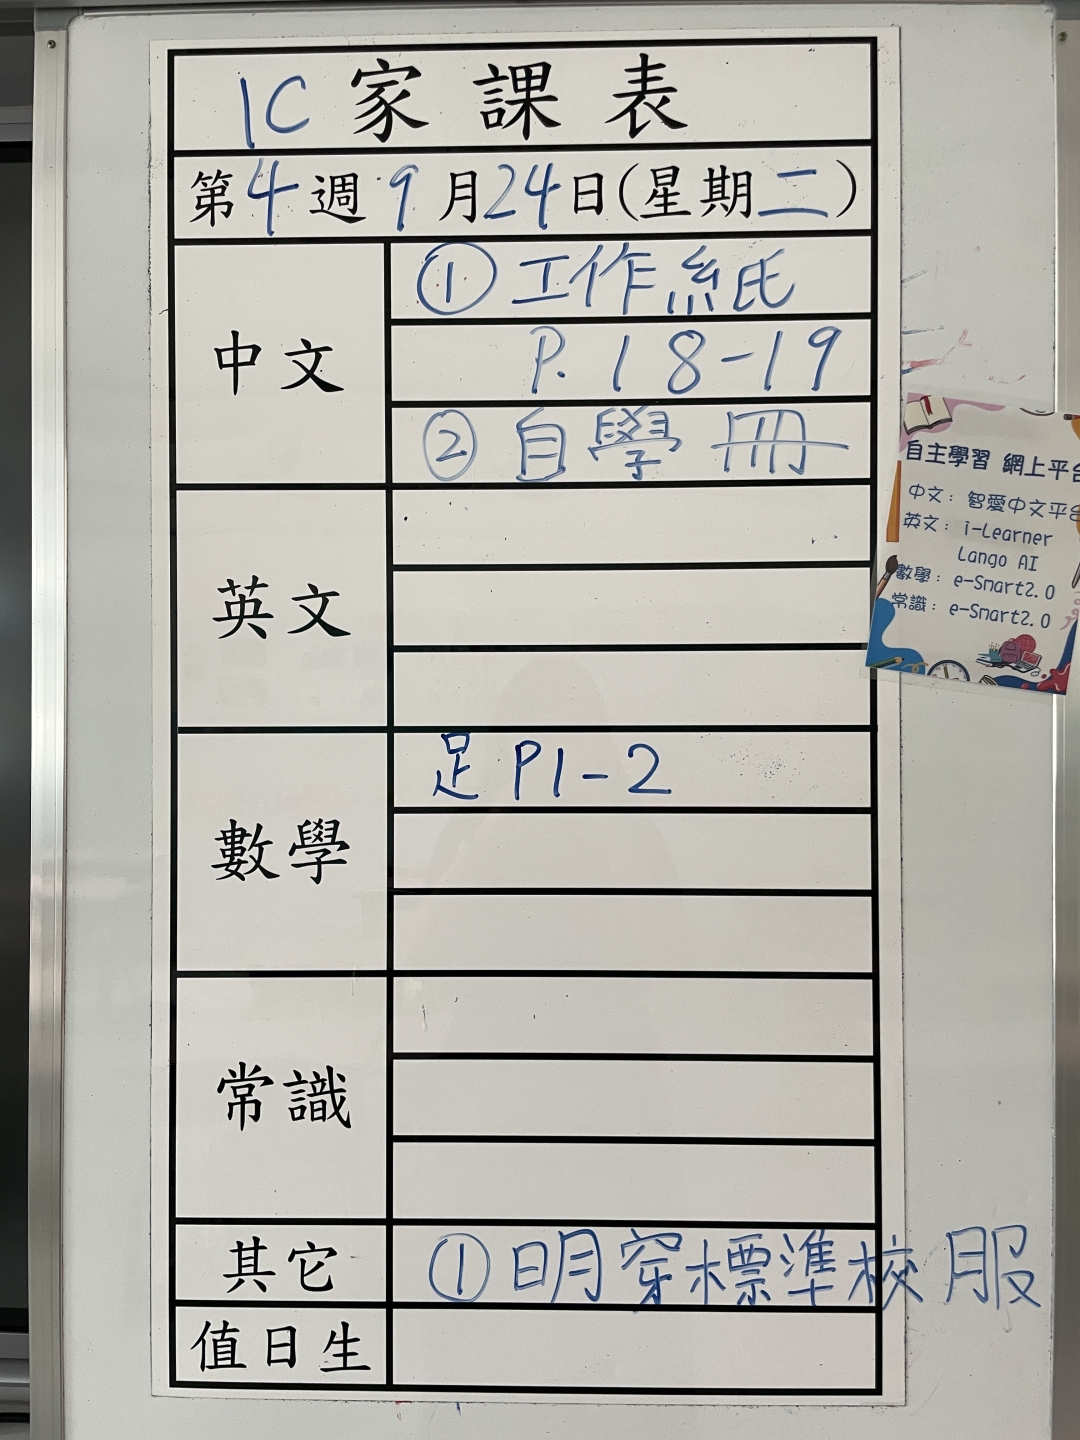 1C 家課表
第4週 9月24日(星期二)
中文
① 工作紙
P. 18-19
② 自學冊
英文
數學
足 P1-2
常識
其它
① 明穿標準校服
值日生
自主學習 網上平台
中文：智愛中文平台
英文：i-Learner
Lango AI
數學：e-Smart2.0
常識：e-Smart2.0